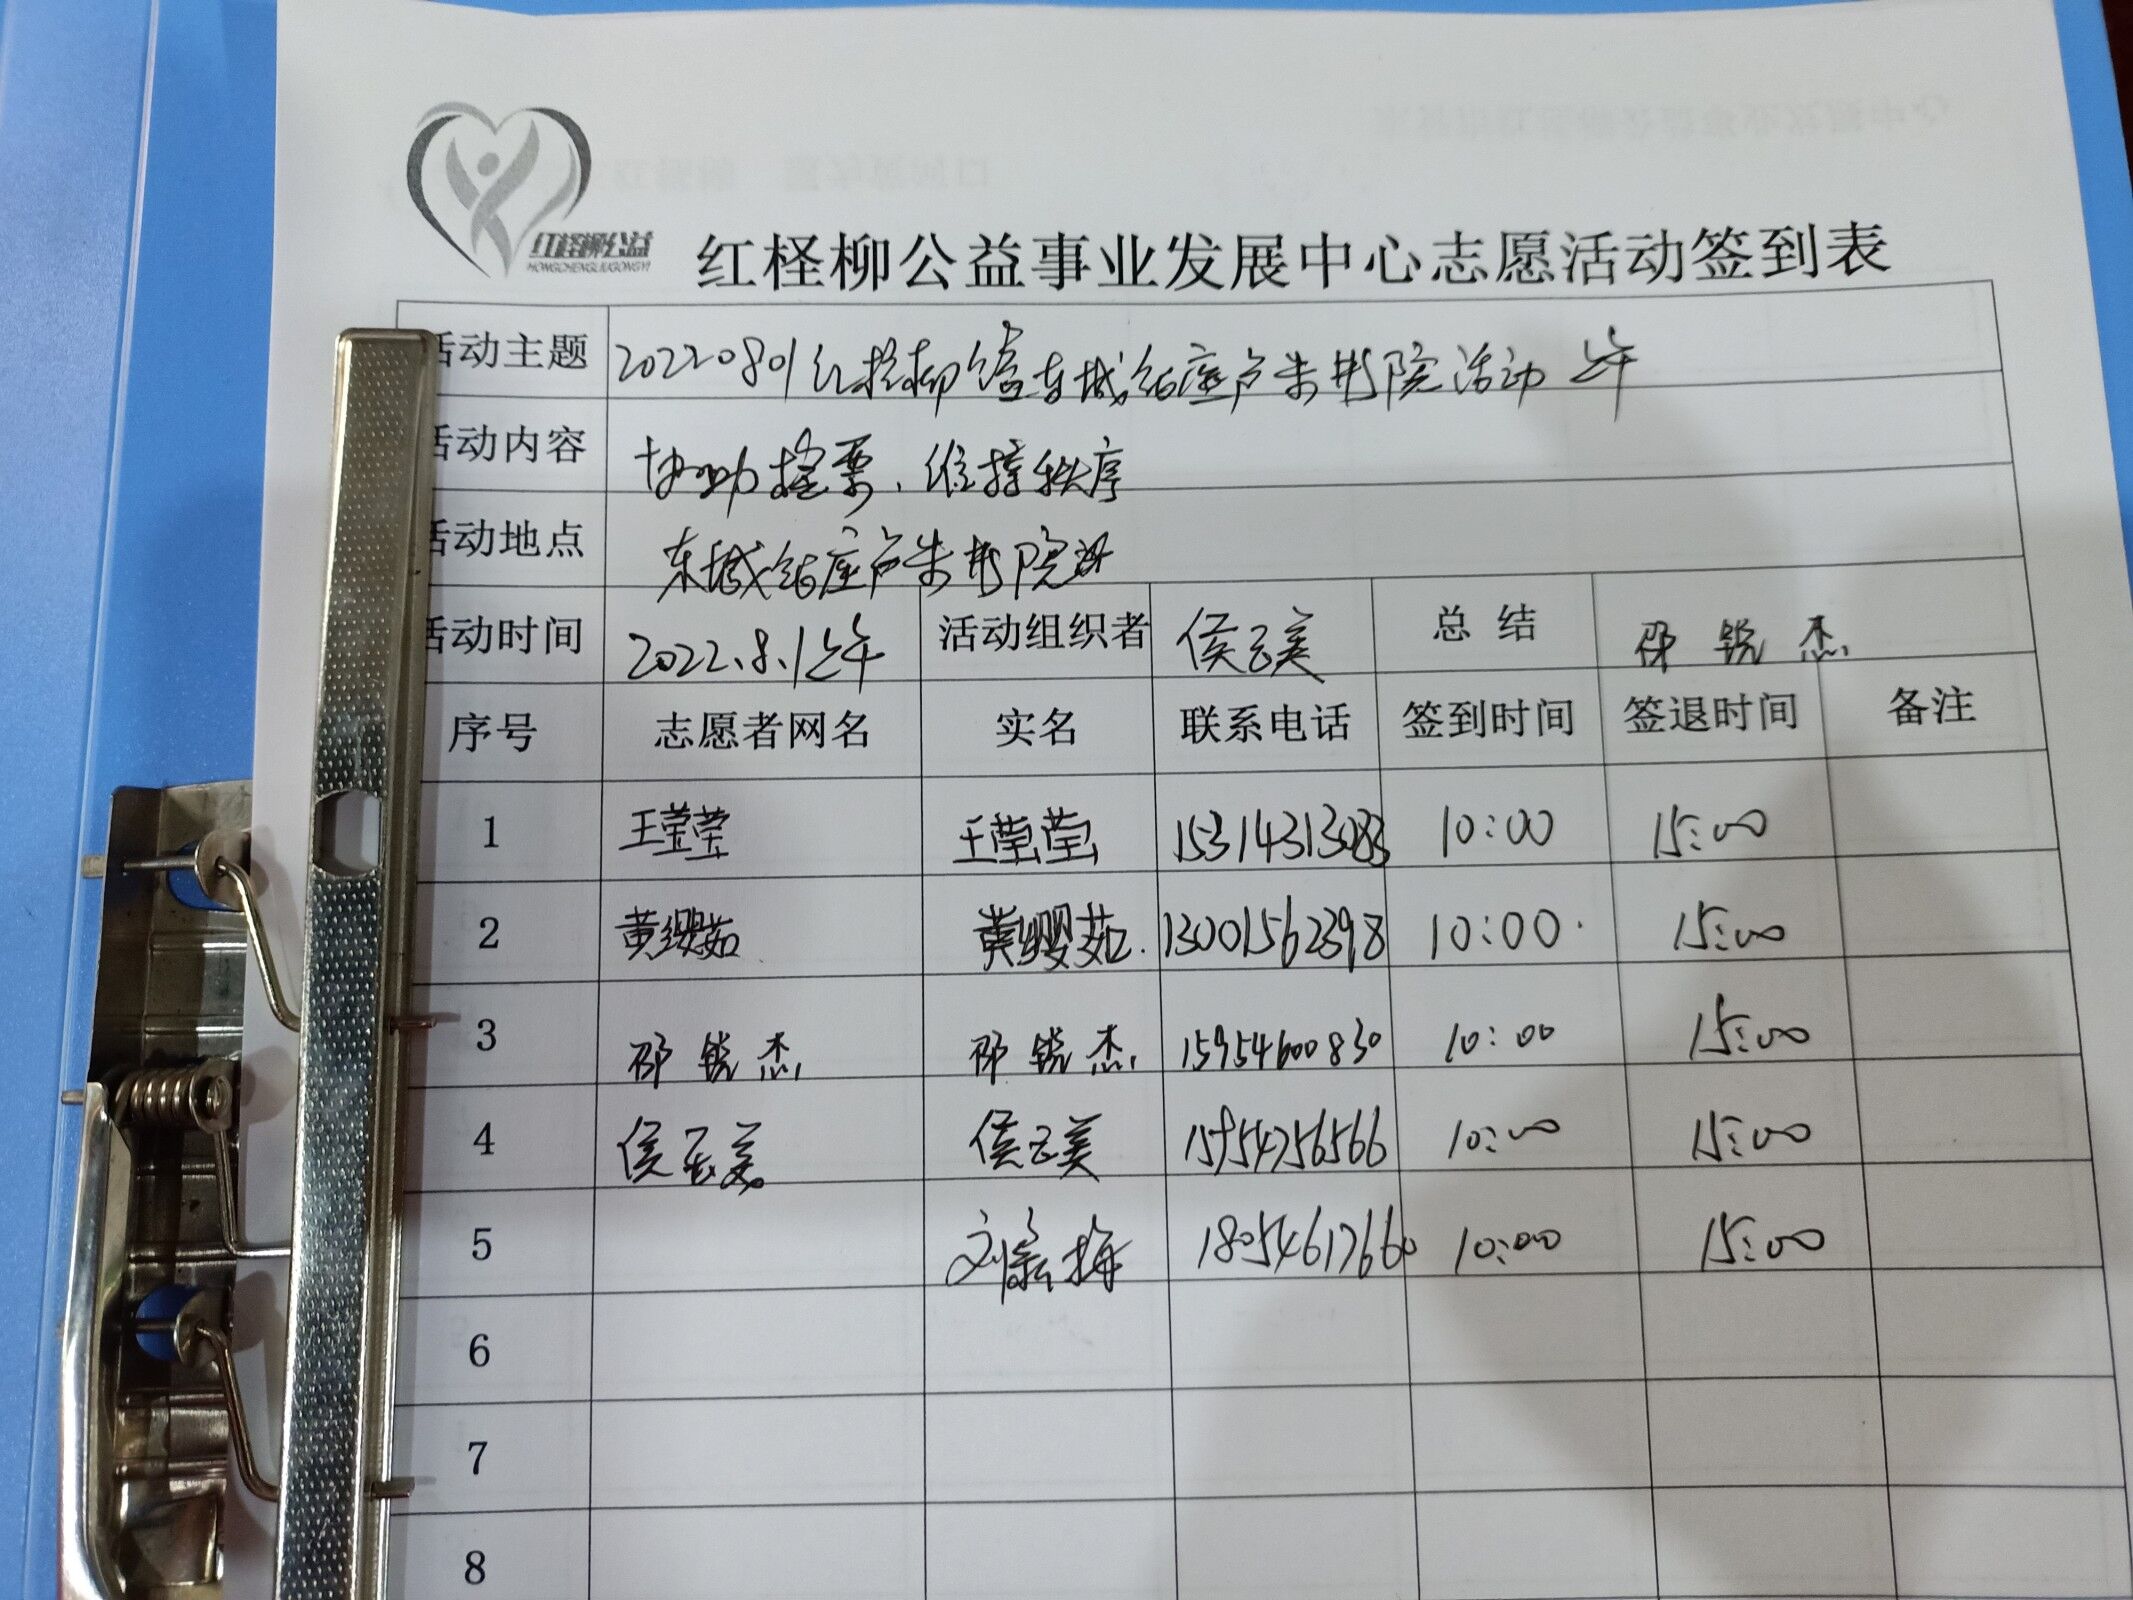 红柽柳公益
HONGCHENGLIUGONGYI
红柽柳公益事业发展中心志愿活动签到表
活动主题 20220801红柽柳 东城 活动 上午
活动内容 协助 票、维持秩序
活动地点 东城
活动时间 2022.8.1上午 活动组织者 侯玉美 总结 邵锐杰
序号 志愿者网名 实名 联系电话 签到时间 签退时间 备注
1 王莹莹 王莹莹 15314313083 10:00 15:00
2 黄缨茹 黄缨茹 13001562398 10:00 15:00
3 邵锐杰 邵锐杰 15954600830 10:00 15:00
4 侯玉美 侯玉美 15954756566 10:00 15:00
5 刘 梅 18054617660 10:00 15:00
6
7
8